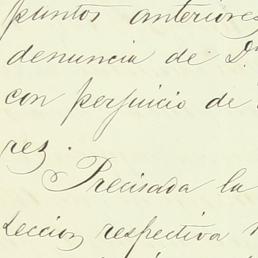 puntos anteriores
denuncia de D.n
con perjuicio de
res.
Precisada la
seccion respectiva